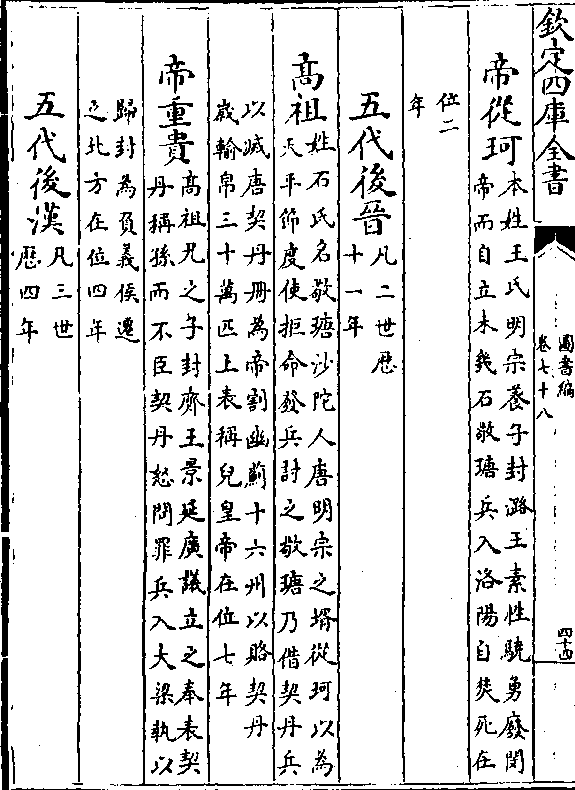 欽定四庫全書
圖書編
卷七十八
四十四
帝從珂
本姓王氏明宗養子封潞王素性驍勇廢閔
帝而自立未幾石敬瑭兵入洛陽自焚死在
位二
年
五代後晉
凡二世歷
十一年
高祖
姓石氏名敬瑭沙陀人唐明宗之壻從珂以為
天平節度使拒命發兵討之敬瑭乃借契丹兵
以滅唐契丹冊為帝割幽薊十六州以賂契丹
歲輸帛三十萬匹上表稱兒皇帝在位七年
帝重貴
高祖兄之子封齊王景延廣議立之奉表契
丹稱孫而不臣契丹怒問罪兵入大梁執以
歸封為負義侯遷
之北方在位四年
五代後漢
凡三世
歷四年